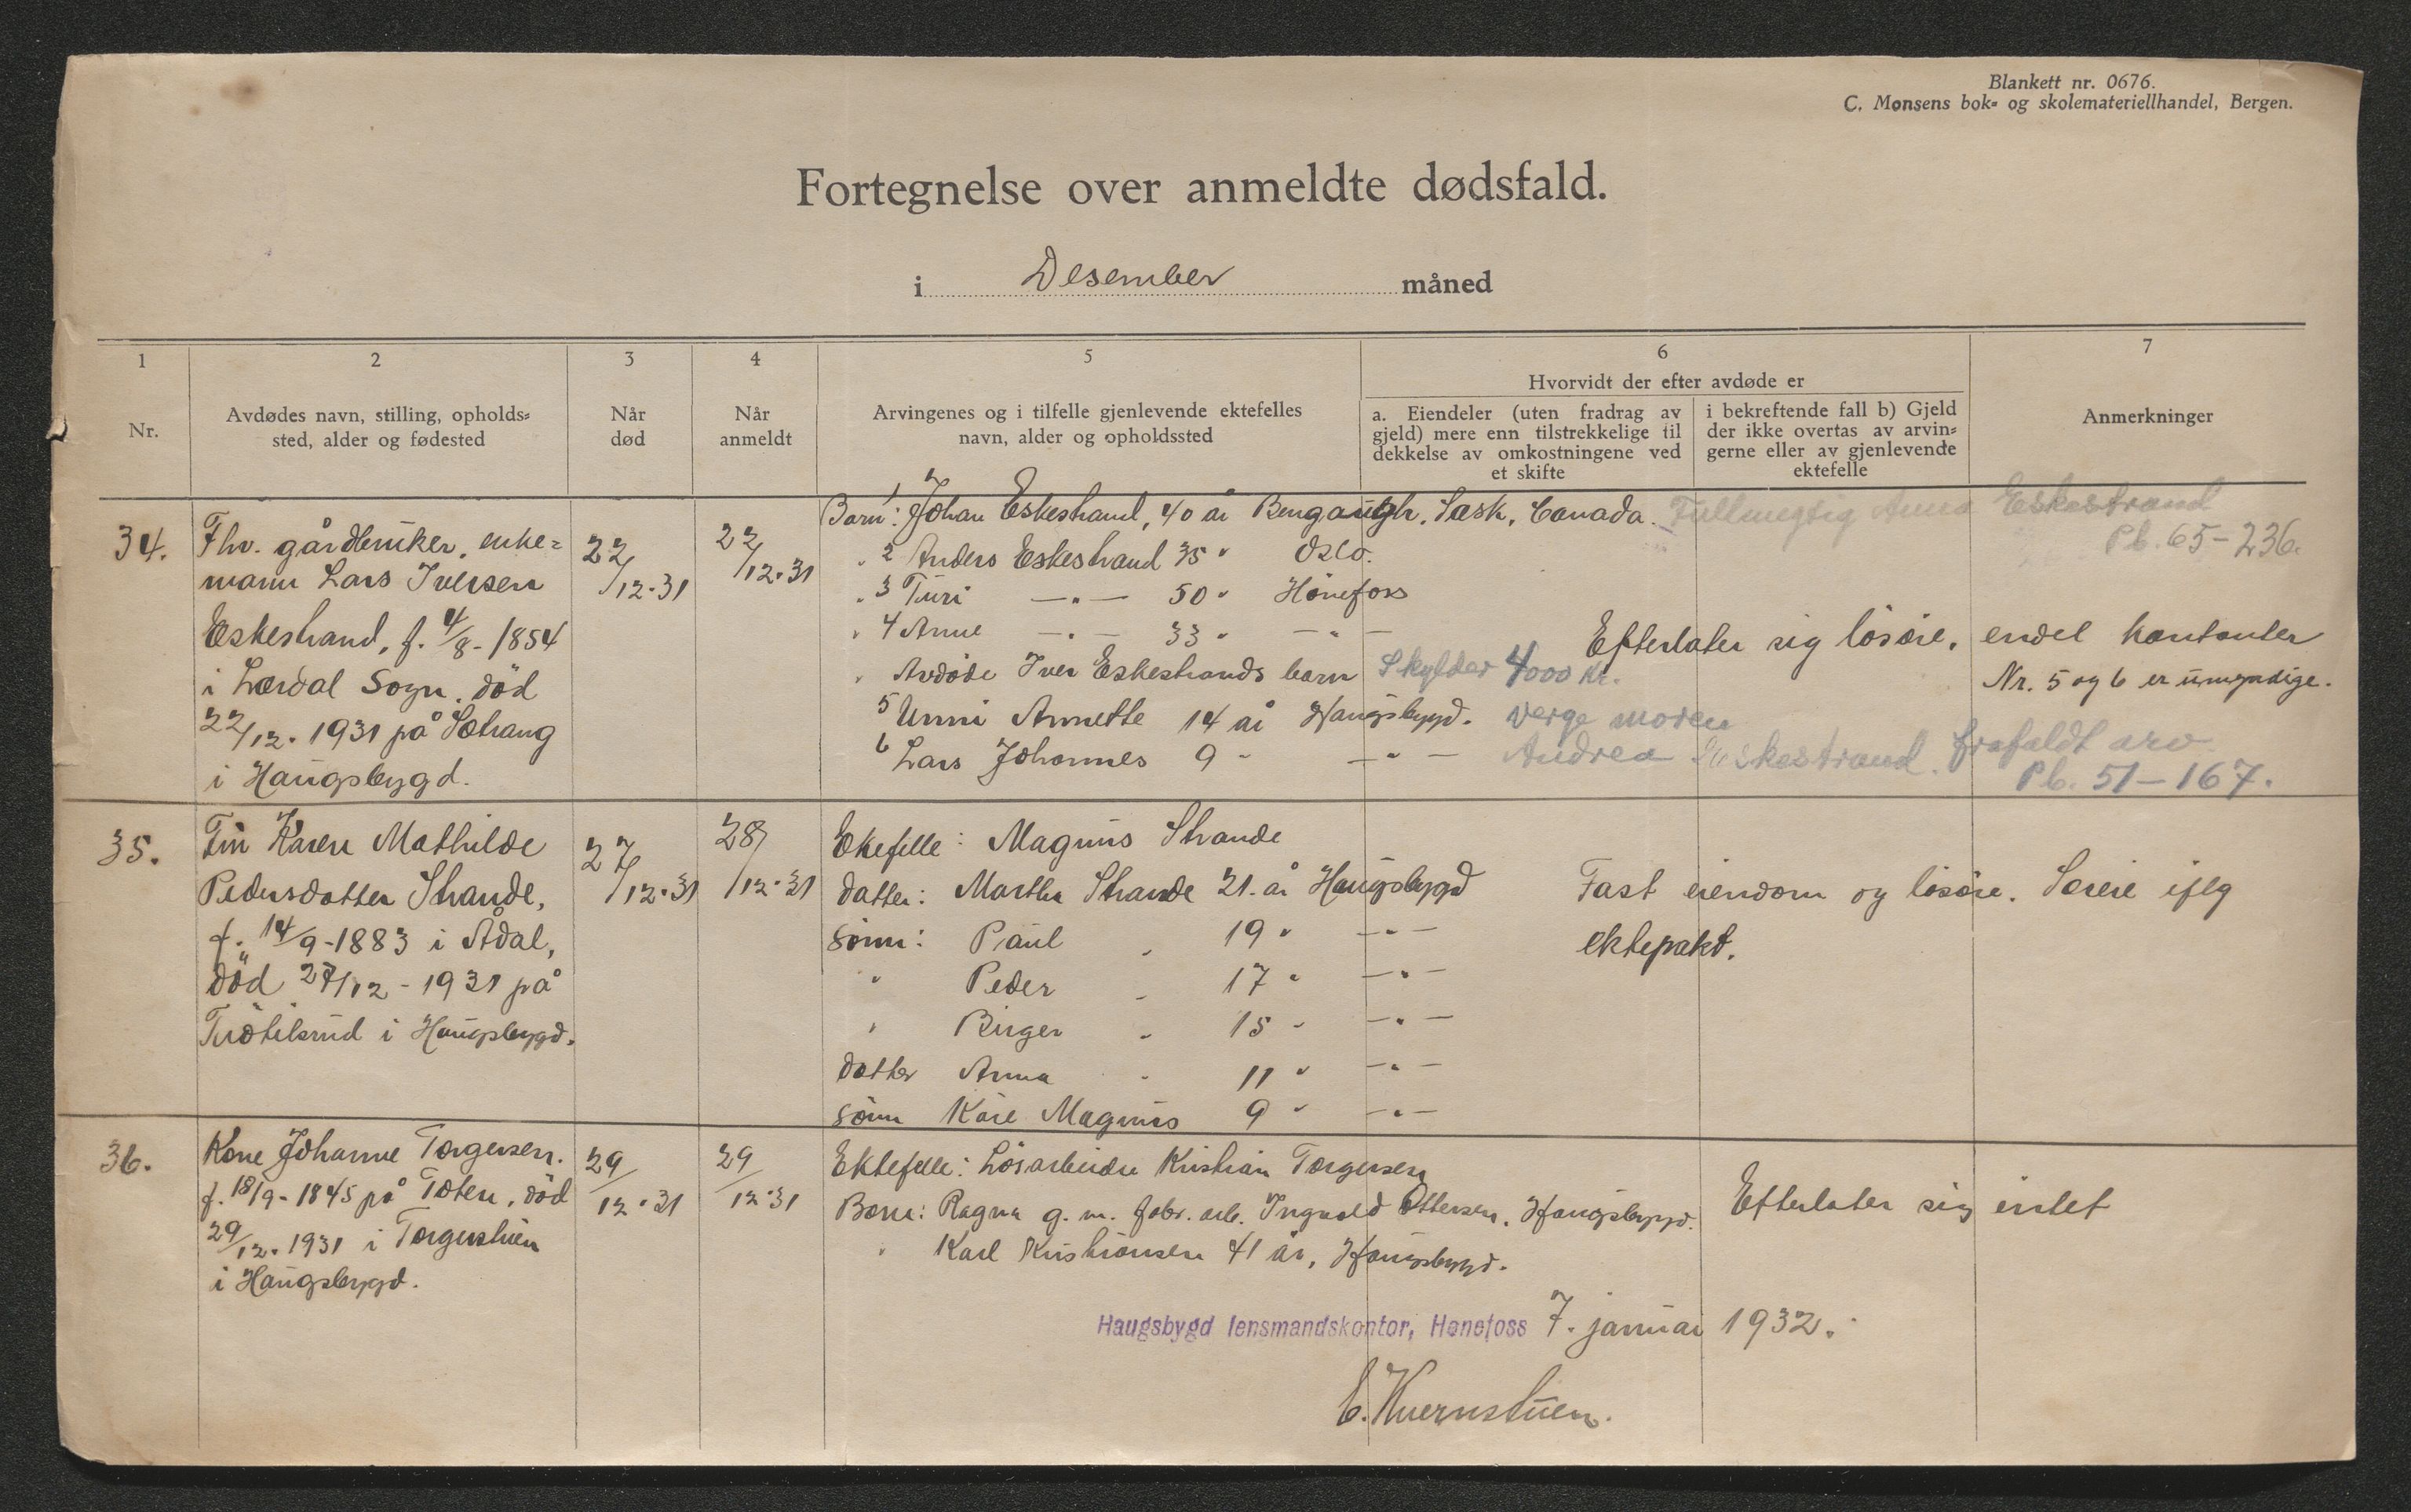 Blankett nr. 0676.
C. Monsens bok- og skolemateriellhandel, Bergen.
Fortegnelse over anmeldte dødsfald.
i Desember måned
1
Nr.
2
Avdødes navn, stilling, opholds-
sted, alder og fødested
3
Når
død
4
Når
anmeldt
5
Arvingenes og i tilfelle gjenlevende ektefelles
navn, alder og opholdssted
6
Hvorvidt der efter avdøde er
a. Eiendeler (uten fradrag av
gjeld) mere enn tilstrekkelige til
dekkelse av omkostningene ved
et skifte
i bekreftende fall b) Gjeld
der ikke overtas av arvin-
gerne eller av gjenlevende
ektefelle
7
Anmerkninger
34.
Fhv. gårdbruker, enke-
mann Lars Iversen
Eskestrand, f. 4/8-1854
i Lærdal Sogn, död
22/12. 1931 på Sætrang
i Haugsbygd.
22/12.31
22/12.31
Barn: 1 Johan Eskestrand, 40 år Bengough, Sask, Canada.
" 2 Anders Eskestrand 35 " Oslo.
" 3 Turi —"— 50 " Hönefoss
" 4 Anne —"— 33 " —"—
" Avdöde Iver Eskestrands barn
5 Unni Annette 14 år Haugsbygd.
6 Lars Johannes 9 " —"—
Fullmegtig Anna Eskestrand
Pb. 65-236.
Efterlater sig lösöre, endel kontanter
Skylder 4000 kr.
Nr. 5 og 6 er umyndige.
Verge moren
Andrea Eskestrand. frafaldt arv
Pb. 51-167.
35.
Fru Karen Mathilde
Pedersdatter Strande,
f. 14/9-1883 i Ådal,
död 27/12-1931 på
Trötelsrud i Haugsbygd.
27/12.31
28/12.31
Ekefelle: Magnus Strande
datter: Martha Strande 21. år Haugsbygd
sönn: Paul " 19 " —"—
" Peder " 17 " —"—
" Birger " 15 " —"—
datter Anna " 11 " —"—
sönn Kåre Magnus 9 " —"—
Fast eiendom og lösöre. Særeie iflg
ektepakt.
36.
Kone Johanne Torgersen.
f. 18/9-1845 på Toten, död
29/12. 1931 i Torgerstuen
i Haugsbygd.
29/12.31
29/12.31
Ektefelle: Lösarbeider Kristian Torgersen
Barn: Ragna g. m. fabr. arb. Ingvald Ottersen, Haugsbygd.
" Karl Kristiansen 41 år, Haugsbygd.
Efterlater sig intet
Haugsbygd lensmandskontor, Hønefoss 7. januar 1932.
E. Kvernstuen.